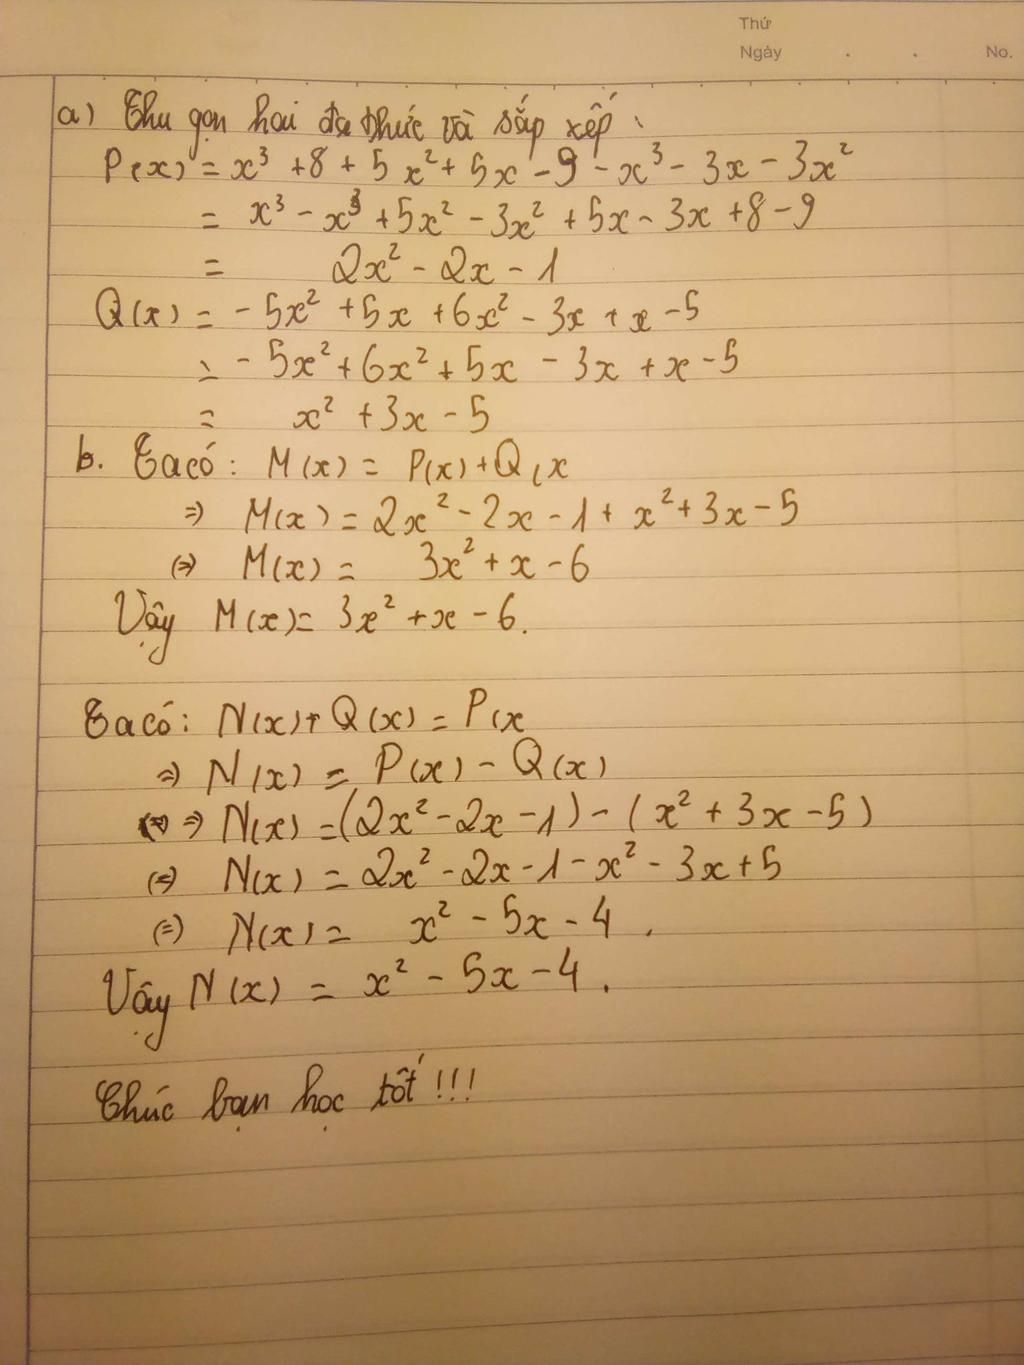 Thứ
Ngày . . No.
a) Thu gọn hai đa thức và sắp xếp :
P(x) = x³ + 8 + 5x² + 5x - 9 - x³ - 3x - 3x²
= x³ - x³ + 5x² - 3x² + 5x - 3x + 8 - 9
= 2x² - 2x - 1
Q(x) = - 5x² + 5x + 6x² - 3x + x - 5
= - 5x² + 6x² + 5x - 3x + x - 5
= x² + 3x - 5
b. Ta có : M(x) = P(x) + Q(x
⇒ M(x) = 2x² - 2x - 1 + x² + 3x - 5
(⇒) M(x) = 3x² + x - 6
Vậy M(x) = 3x² + x - 6.
Ta có : N(x) + Q(x) = P(x
⇒ N(x) = P(x) - Q(x)
⇒ N(x) = (2x² - 2x - 1) - (x² + 3x - 5)
(⇒) N(x) = 2x² - 2x - 1 - x² - 3x + 5
(=) N(x) = x² - 5x - 4 .
Vậy N(x) = x² - 5x - 4 .
Chúc bạn học tốt !!!